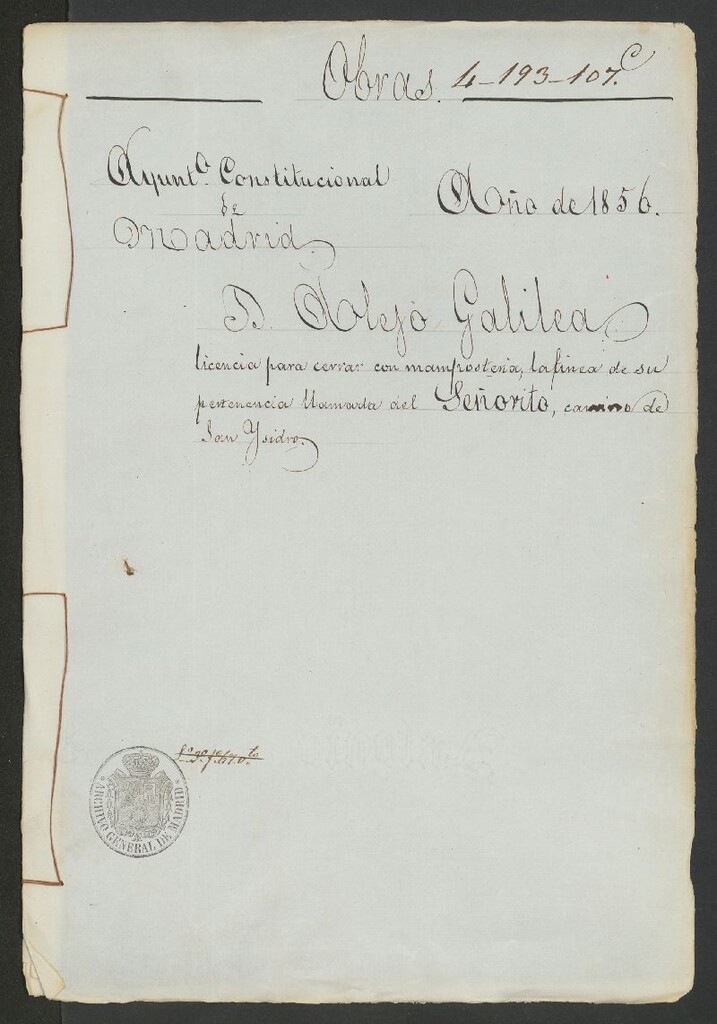 Obras. 4-193-107.C
Ayunt.o Constitucional
de
Madrid
Año de 1856.
D. Alejo Galilea
licencia para cerrar con mamposteria, la finca de su
pertenencia llamada del Señorito, camino de
San Ysidro.
ARCHIVO GENERAL DE MADRID